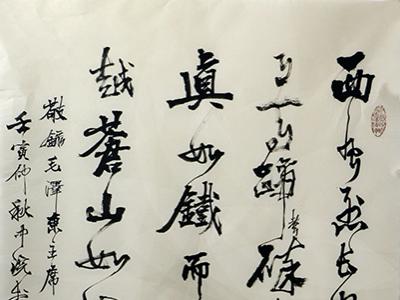 西風烈長
馬蹄聲碎
真如鐵而
越蒼山如
敬錄毛澤東主席
壬寅仲秋中浣